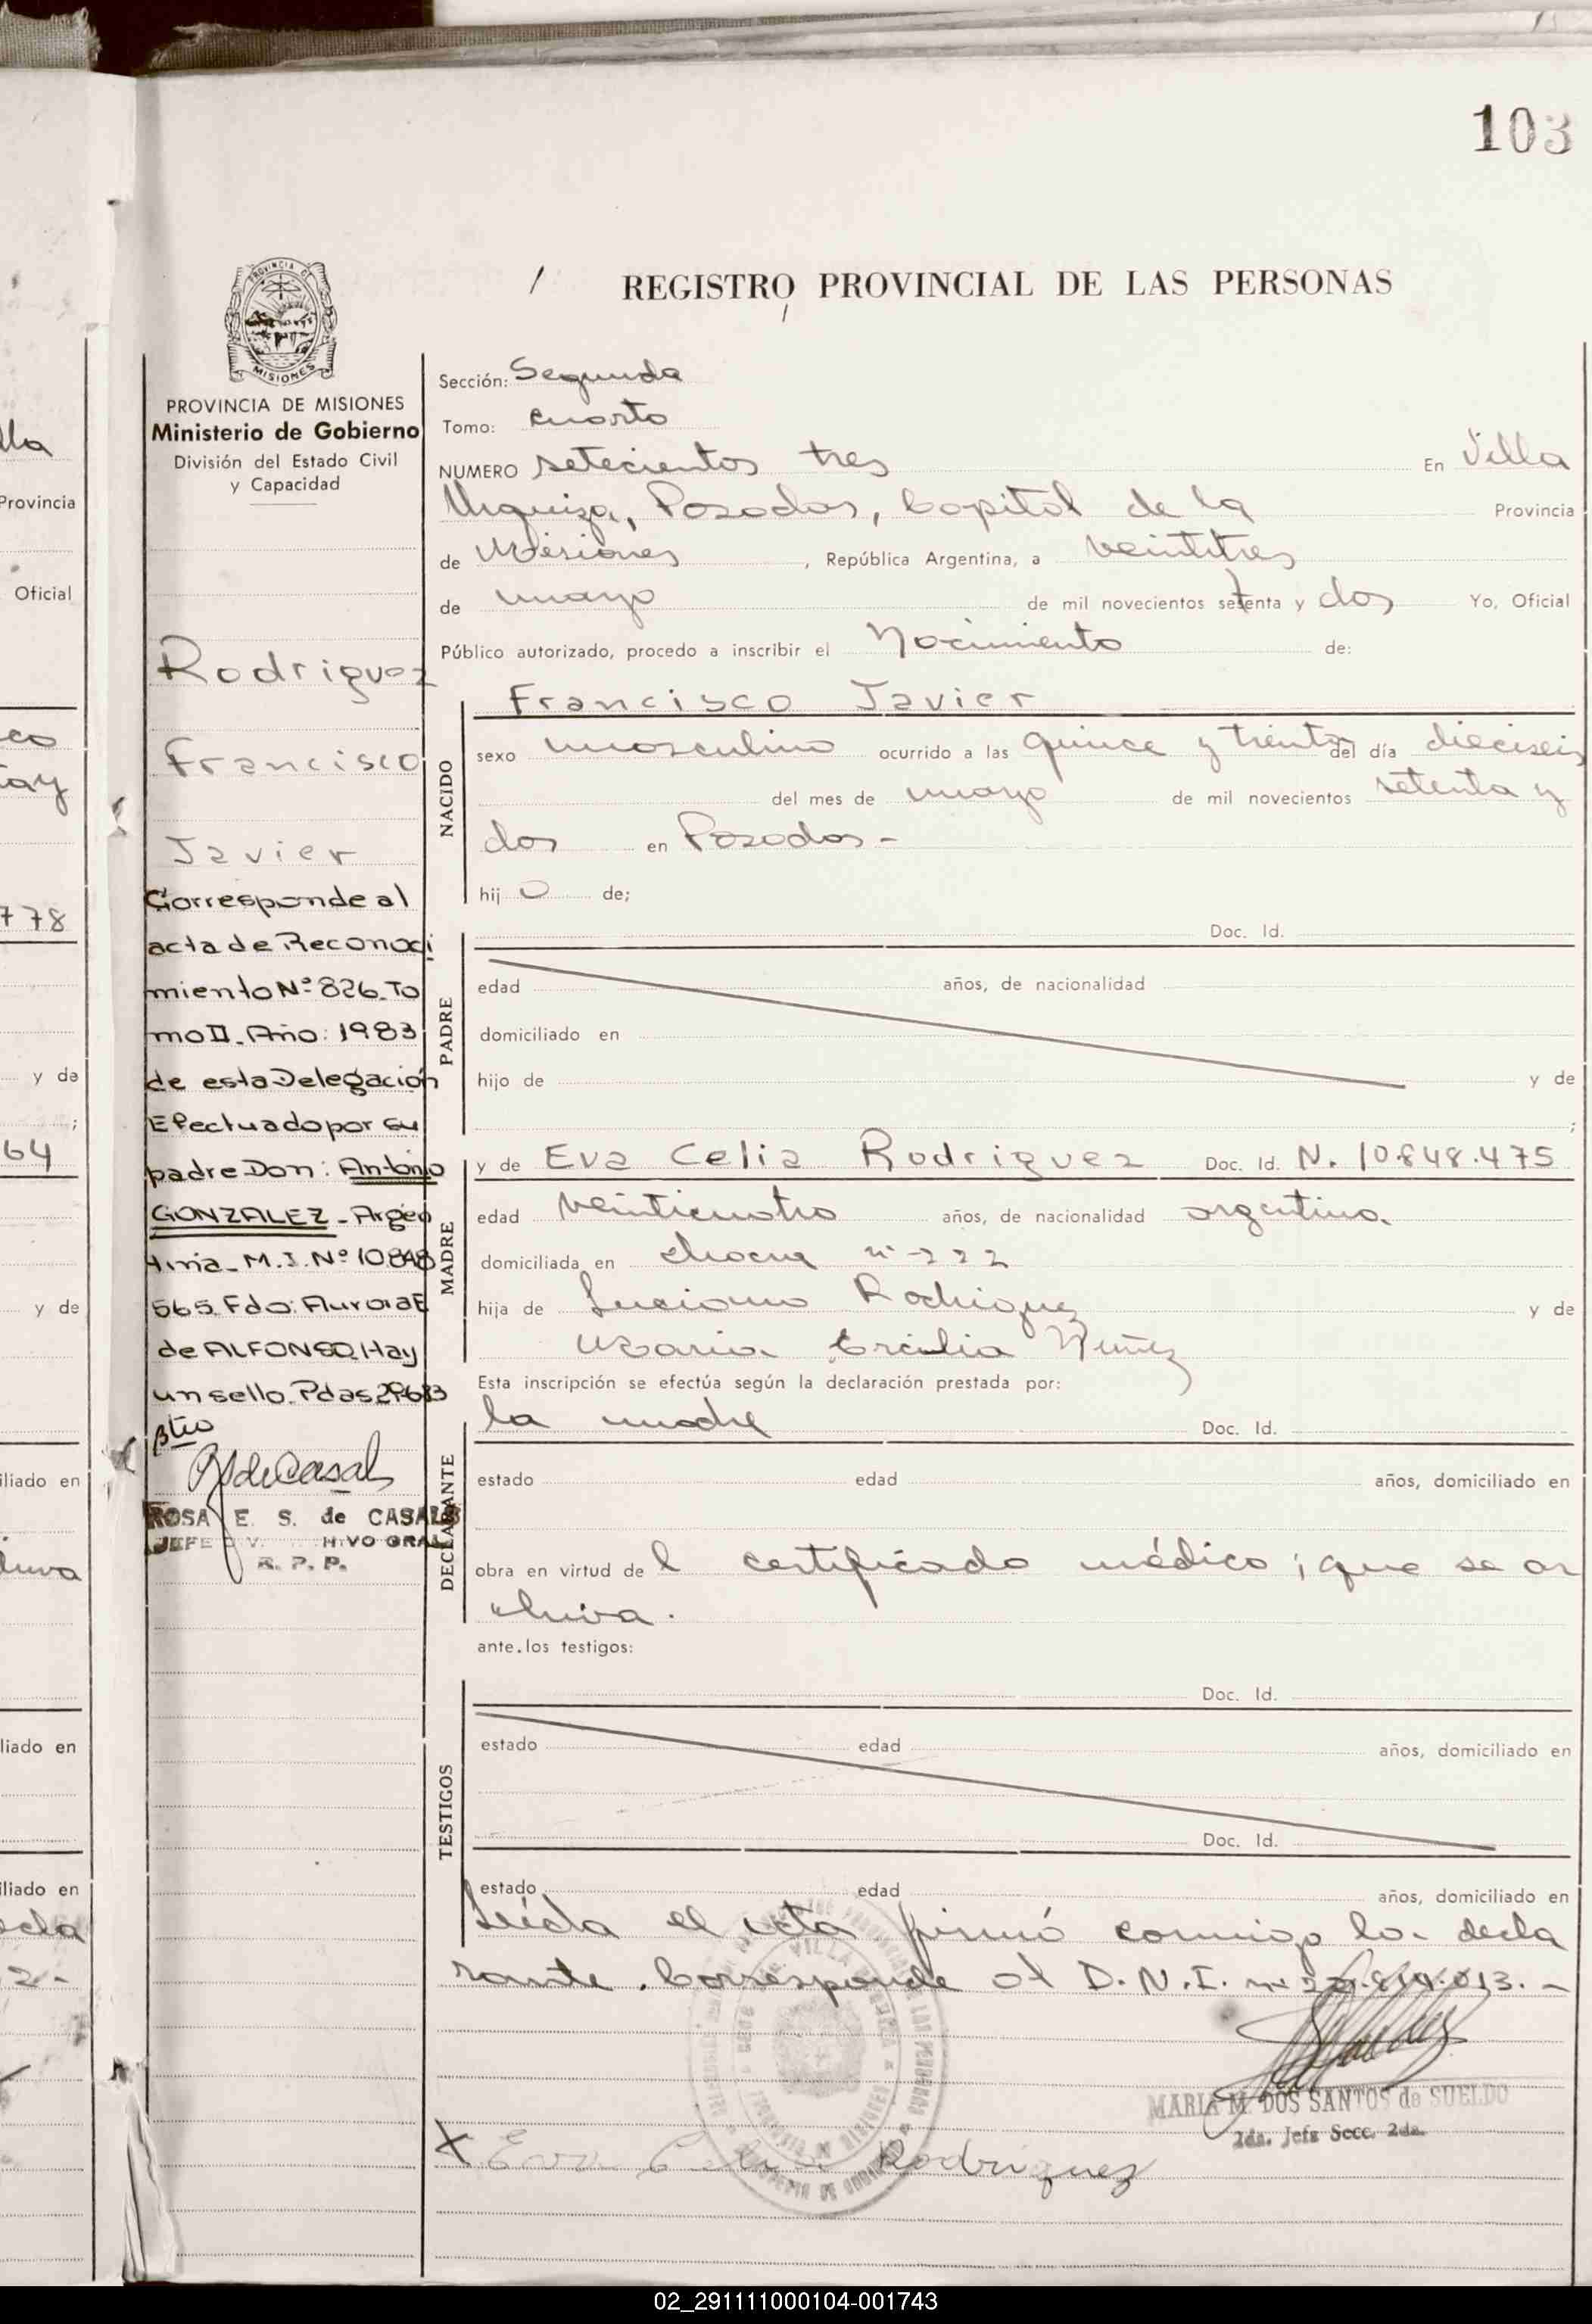 103
REGISTRO PROVINCIAL DE LAS PERSONAS
PROVINCIA DE MISIONES
Ministerio de Gobierno
División del Estado Civil
y Capacidad
Rodriguez
Francisco
Javier
Corresponde al
acta de Reconoci
miento Nº 826. To
mo II. Año: 1983
de esta Delegación
Efectuado por su
padre Don: Antonio
GONZALEZ - Argen
tina. M.I. Nº 10.848
565. Fdo: Aurora E
de ALFONSO. Hay
un sello. Pdas
ROSA E. S. de CASALS
JEFE
R. P. P.
Sección: Segunda
Tomo: cuarto
NUMERO setecientos tres En Villa
Urquiza, Posadas, Capital de la Provincia
de Misiones, República Argentina, a veintitres
de mayo de mil novecientos setenta y dos Yo, Oficial
Público autorizado, procedo a inscribir el Nacimiento de:
Francisco Javier
NACIDO
sexo masculino ocurrido a las quince y treinta del día dieciseis
del mes de mayo de mil novecientos setenta y
dos en Posadas -
hij o de;
Doc. Id.
PADRE
edad años, de nacionalidad
domiciliado en
hijo de y de
;
MADRE
y de Eva Celia Rodriguez Doc. Id. N. 10.848.475
edad veinticuatro años, de nacionalidad argentina.
domiciliada en nº 222
hija de Luciano Rodriguez y de
Maria Ercilia Nuñez
Esta inscripción se efectúa según la declaración prestada por:
DECLARANTE
la madre Doc. Id.
estado edad años, domiciliado en
obra en virtud de l certificado médico; que se ar
chiva.
ante los testigos:
TESTIGOS
Doc. Id.
estado edad años, domiciliado en
Doc. Id.
estado edad años, domiciliado en
Leída el acta firmó conmigo la decla
rante. Corresponde al D.N.I. nº
MARIA M. DOS SANTOS de SUELDO
2da. Jefa Secc. 2da.
x Eva Celia Rodriguez
02_291111000104-001743